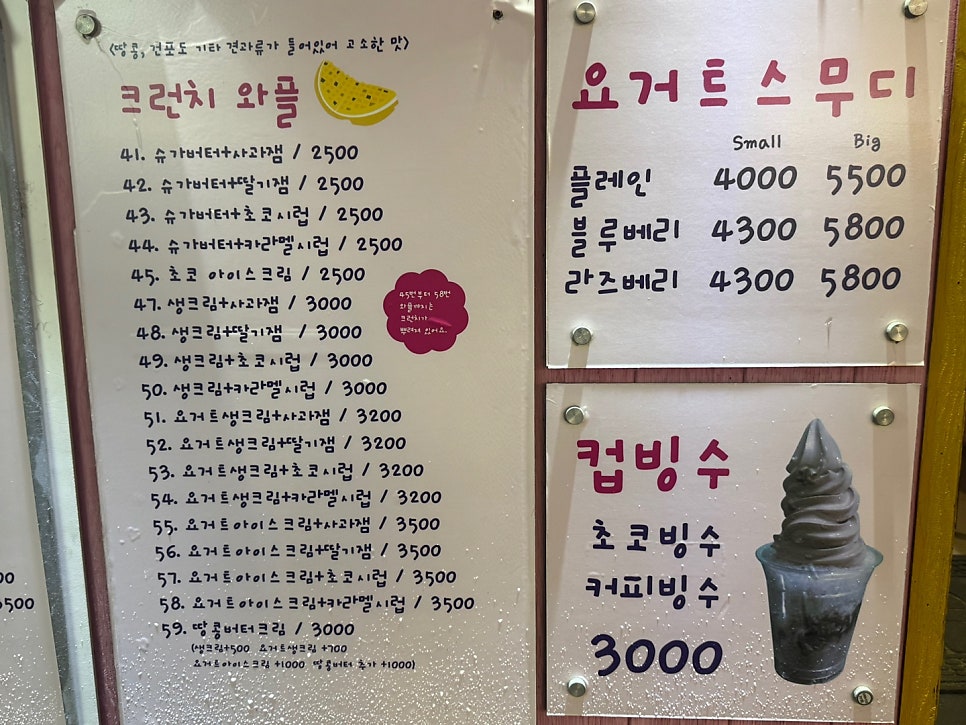 <땅콩, 건포도 기타 견과류가 들어있어 고소한 맛>
크런치 와플
41. 슈가버터+사과잼 / 2500
42. 슈가버터+딸기잼 / 2500
43. 슈가버터+초코시럽 / 2500
44. 슈가버터+카라멜시럽 / 2500
45. 초코 아이스크림 / 2500
47. 생크림+사과잼 / 3000
48. 생크림+딸기잼 / 3000
49. 생크림+초코시럽 / 3000
50. 생크림+카라멜시럽 / 3000
51. 요거트생크림+사과잼 / 3200
52. 요거트생크림+딸기잼 / 3200
53. 요거트생크림+초코시럽 / 3200
54. 요거트생크림+카라멜시럽 / 3200
55. 요거트아이스크림+사과잼 / 3500
56. 요거트아이스크림+딸기잼 / 3500
57. 요거트아이스크림+초코시럽 / 3500
58. 요거트아이스크림+카라멜시럽 / 3500
59. 땅콩버터크림 / 3000
(생크림+500 요거트생크림 +700
요거트아이스크림 +1000 땅콩버터 추가 +1000)
45번부터 58번
와플까지는
크런치가
뿌려져 있어요.
요거트스무디
Small Big
플레인 4000 5500
블루베리 4300 5800
라즈베리 4300 5800
컵빙수
초코빙수
커피빙수
3000